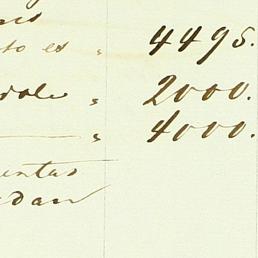 to es " 4495.
" 2000.
" 4000.
entas
dan